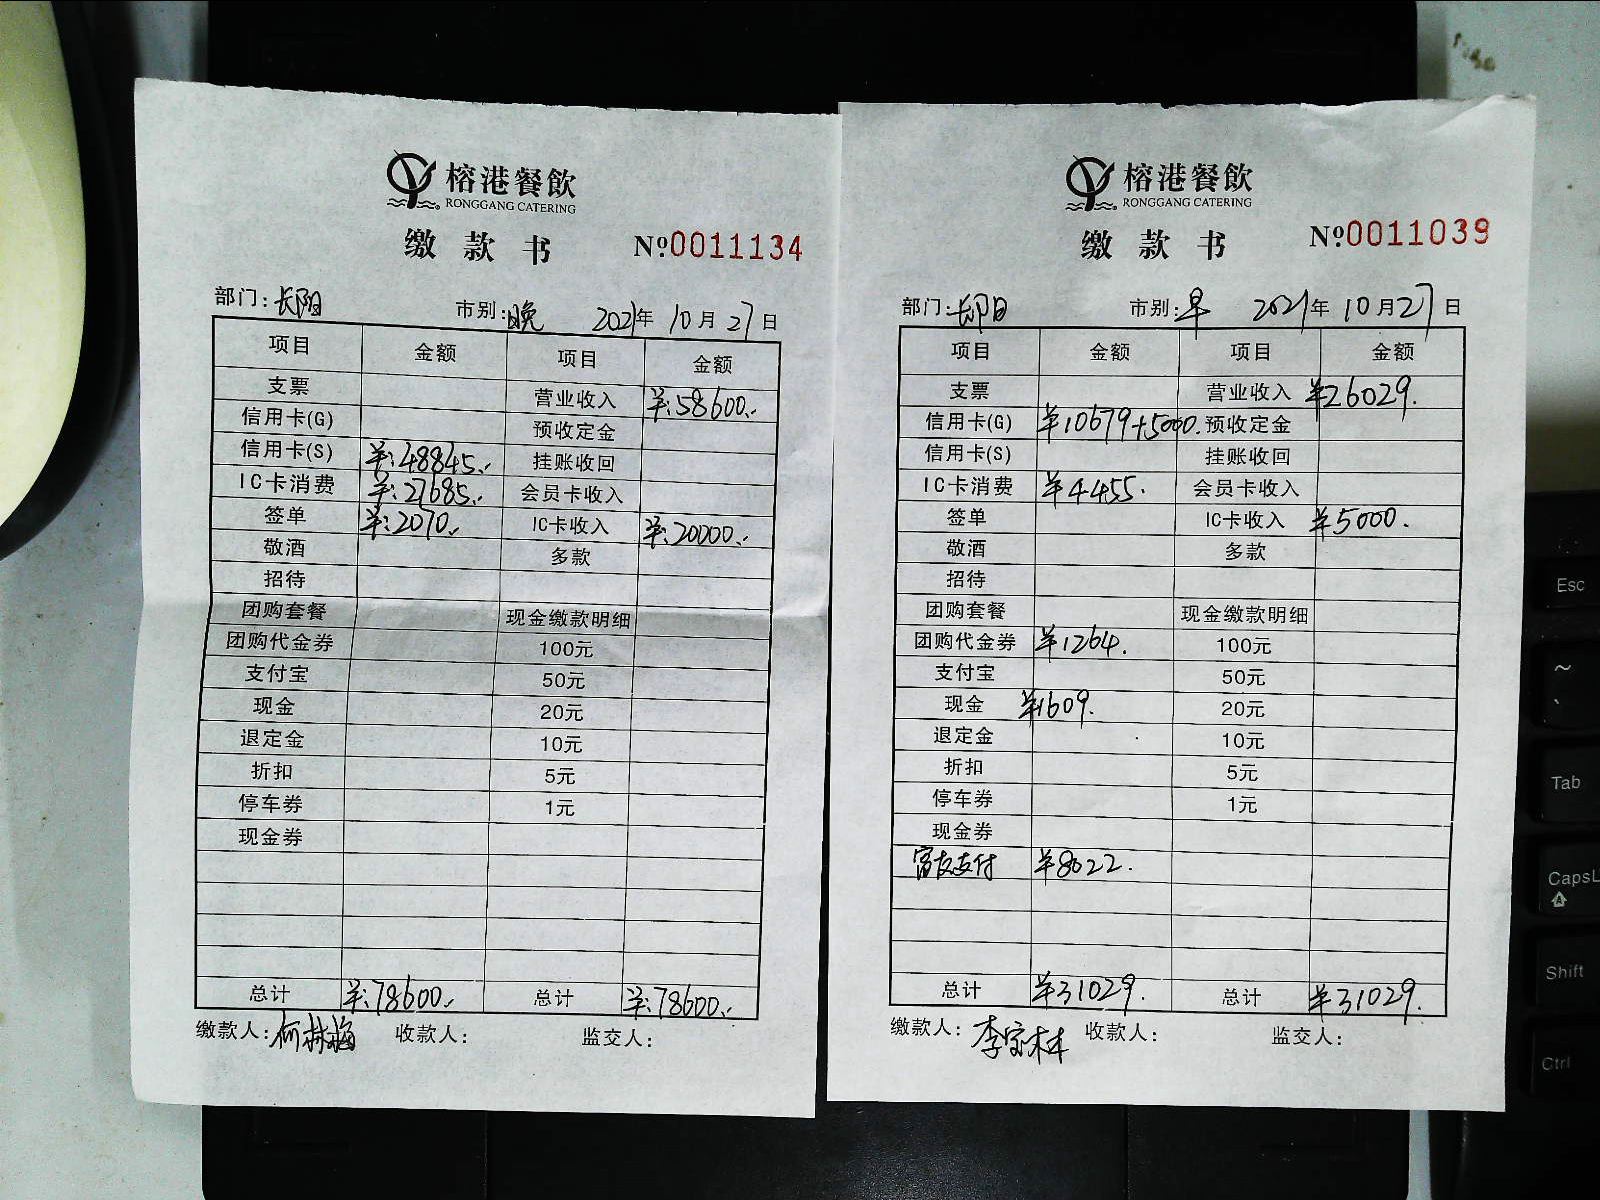 榕港餐飲
RONGGANG CATERING
缴款书 №0011134
部门:长阳 市别:晚 2021年10月27日
项目 金额 项目 金额
支票 营业收入 ¥:58600.
信用卡(G) 预收定金
信用卡(S) ¥:48845. 挂账收回
IC卡消费 ¥:27685. 会员卡收入
签单 ¥:2070. IC卡收入 ¥:20000.
敬酒 多款
招待
团购套餐 现金缴款明细
团购代金券 100元
支付宝 50元
现金 20元
退定金 10元
折扣 5元
停车券 1元
现金券
总计 ¥:78600. 总计 ¥:78600.
缴款人:何林梅 收款人: 监交人:
榕港餐飲
RONGGANG CATERING
缴款书 №0011039
部门:长阳 市别:早 2021年10月27日
项目 金额 项目 金额
支票 营业收入 ¥26029.
信用卡(G) ¥10679+5000. 预收定金
信用卡(S) 挂账收回
IC卡消费 ¥4455. 会员卡收入
签单 IC卡收入 ¥5000.
敬酒 多款
招待
团购套餐 现金缴款明细
团购代金券 ¥1264. 100元
支付宝 50元
现金 ¥1609. 20元
退定金 10元
折扣 5元
停车券 1元
现金券
富友支付 ¥8022.
总计 ¥31029. 总计 ¥31029.
缴款人:李宝林 收款人: 监交人:
Esc
~
`
Tab
CapsL
A
Shift
Ctrl